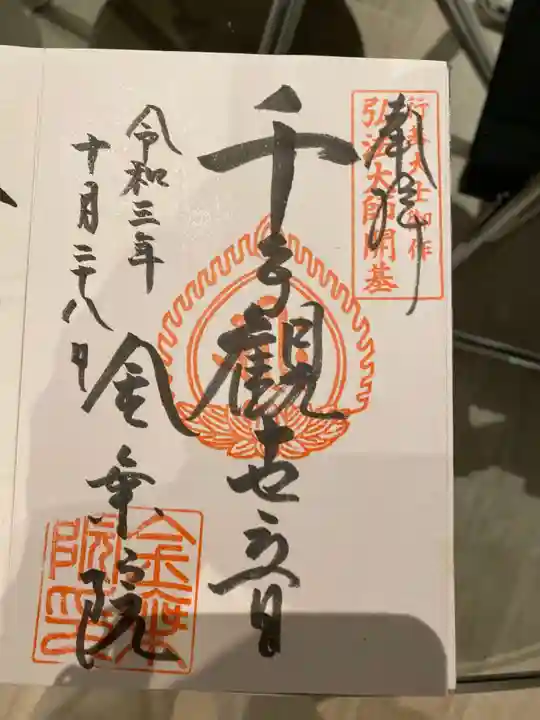 奉拝
行基大士御作
弘法大師開基
千手觀世音
令和三年
十月二十八日
金乗院